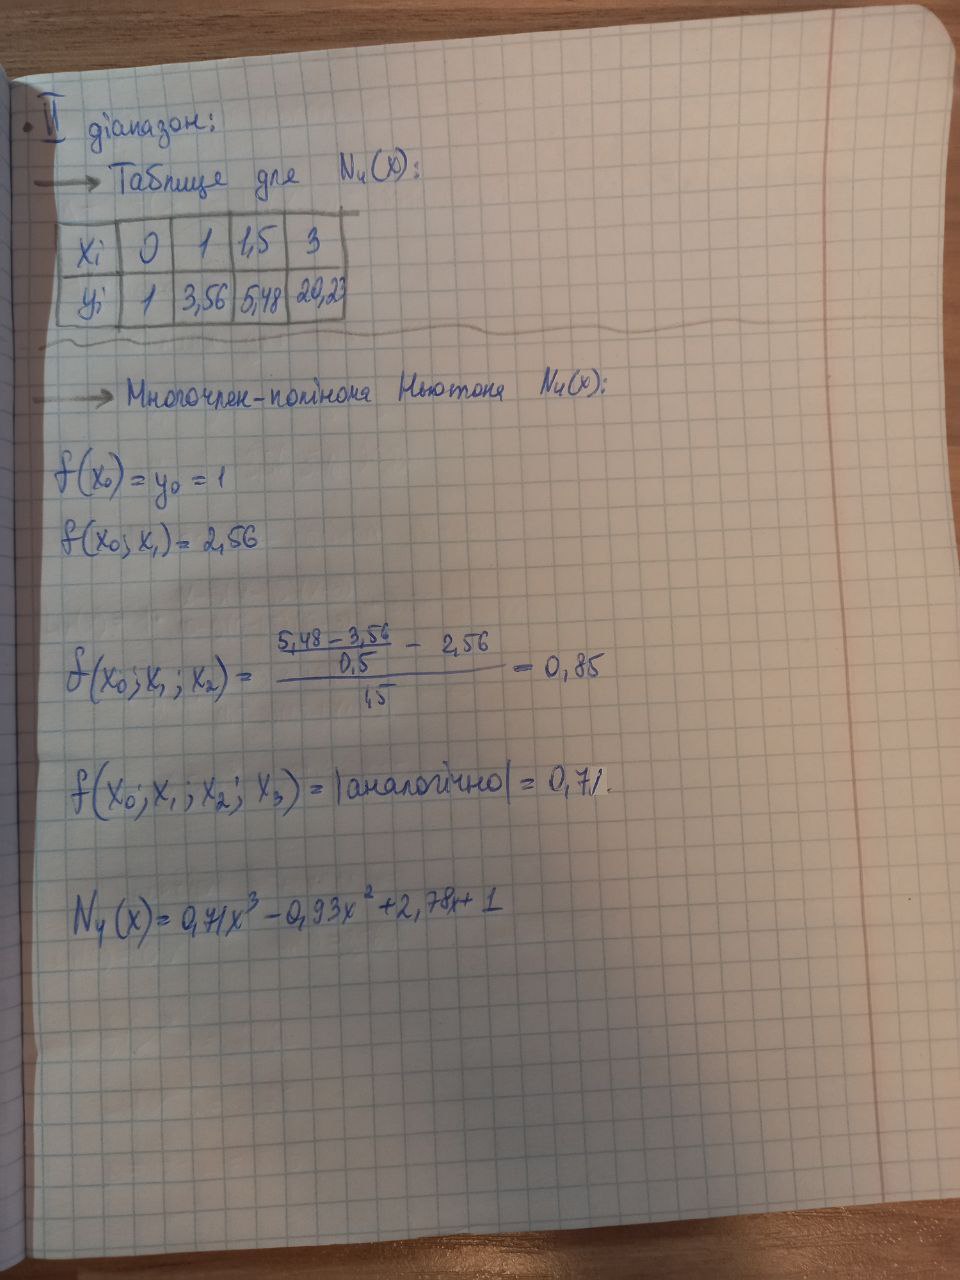 • II діапазон:
→ Таблице для N₄(x):
xᵢ 0 1 1,5 3
yᵢ 1 3,56 5,48 20,23
→ Многочлен-полінома Ньютона N₄(x):
f(x₀) = y₀ = 1
f(x₀; x₁) = 2,56
f(x₀; x₁; x₂) = ((5,48 - 3,56)/0,5 - 2,56)/1,5 = 0,85
f(x₀; x₁; x₂; x₃) = |аналогічно| = 0,71.
N₄(x) = 0,71x³ - 0,93x² + 2,78x + 1